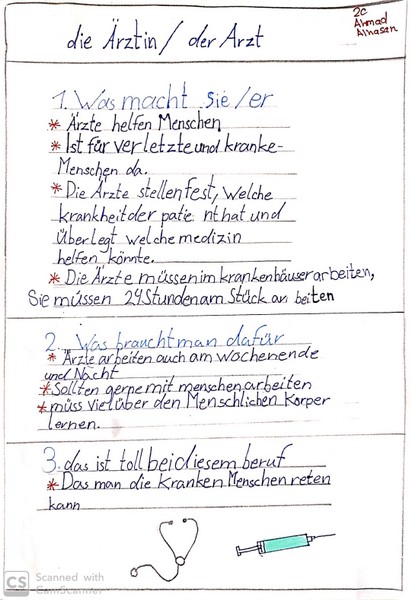 2c
Ahmad
Alhasan
die Ärztin / der Arzt
1. Was macht sie/er
* Ärzte helfen Menschen
* Ist für verletzte und kranke-
Menschen da.
* Die Ärzte stellen fest, welche
krankheit der patie nt hat und
Überlegt welche medizin
helfen könnte.
* Die Ärzte müssen im krankenhäuser arbeiten,
Sie müssen 24 Stunden am Stück an beiten
2. Was braucht man dafür
* Ärzte arbeiten auch am wochenende
und Nacht
* Sollten gerne mit menschen arbeiten
* müss viel über den Menschlichen Körper
lernen.
3. das ist toll bei diesem beruf
* Das man die kranken Menschen reten
kann
CS Scanned with
CamScanner